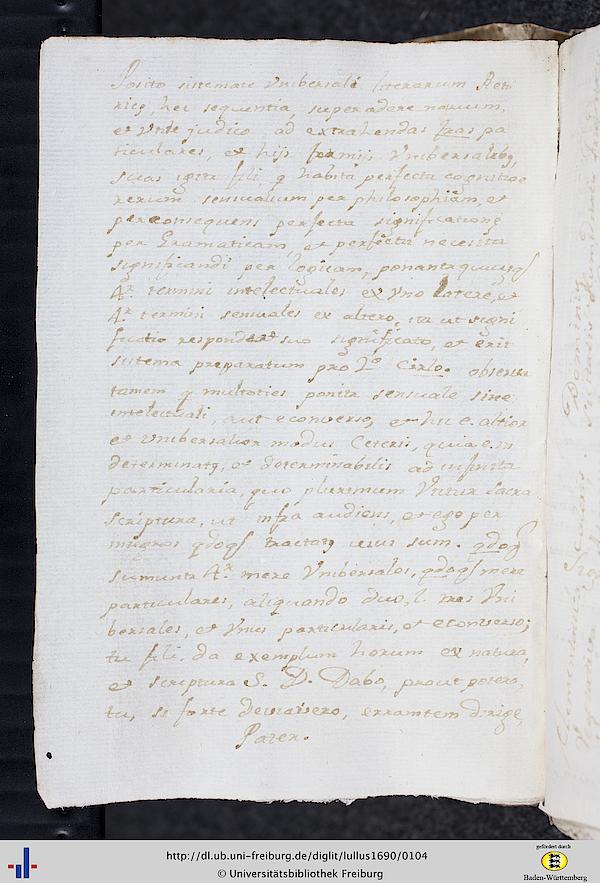 Posito sistemate Vnibersali literarum Reto
rics, hec sequentia, superadere novum,
et Vnde judico ad extrahendas fras pa
ticulares, et hijs formijs Vnibersalibꝯ,
suas igitr fili q habita perfecta cognitioe
rerum sensualium per philosophiam, et
perconsequens perfecta significatione
per Gramaticam, et perfecta necessita
significandi per logicam, ponantr
4.r termini intelectuales ex Vno latere, et
4.r termini sensuales ex altero, ita ut signi
ficatio respondeat suo significato, et erit
sistema preparatum pro 2.o Cirlo. observa
tamen q multoties ponitr sensuale sine
intelectuali, aut econverso, et hic e. altior
et Vnibersalior modus Ceteris, quia e. in
determinatꝯ, et determinabilis ad infinita
particularia, quo plurimum Vtitur Sacra
scriptura, ut infra audiens, et ego per
tractatꝯ usus sum.
sumuntr 4.r mere Vnibersales, mere
particulares, aliquando duo, l. tres Vni
bersales, et Vnus particularis, et econverso;
tu fili. da exemplum horum ex natura,
et scriptura S. D. Dabo, prout potero,
tu, si forte deviavero, erramtem dirige,
Pater.
http://dl.ub.uni-freiburg.de/diglit/lullus1690/0104
© Universitätsbibliothek Freiburg
gefördert durch
Baden-Württemberg